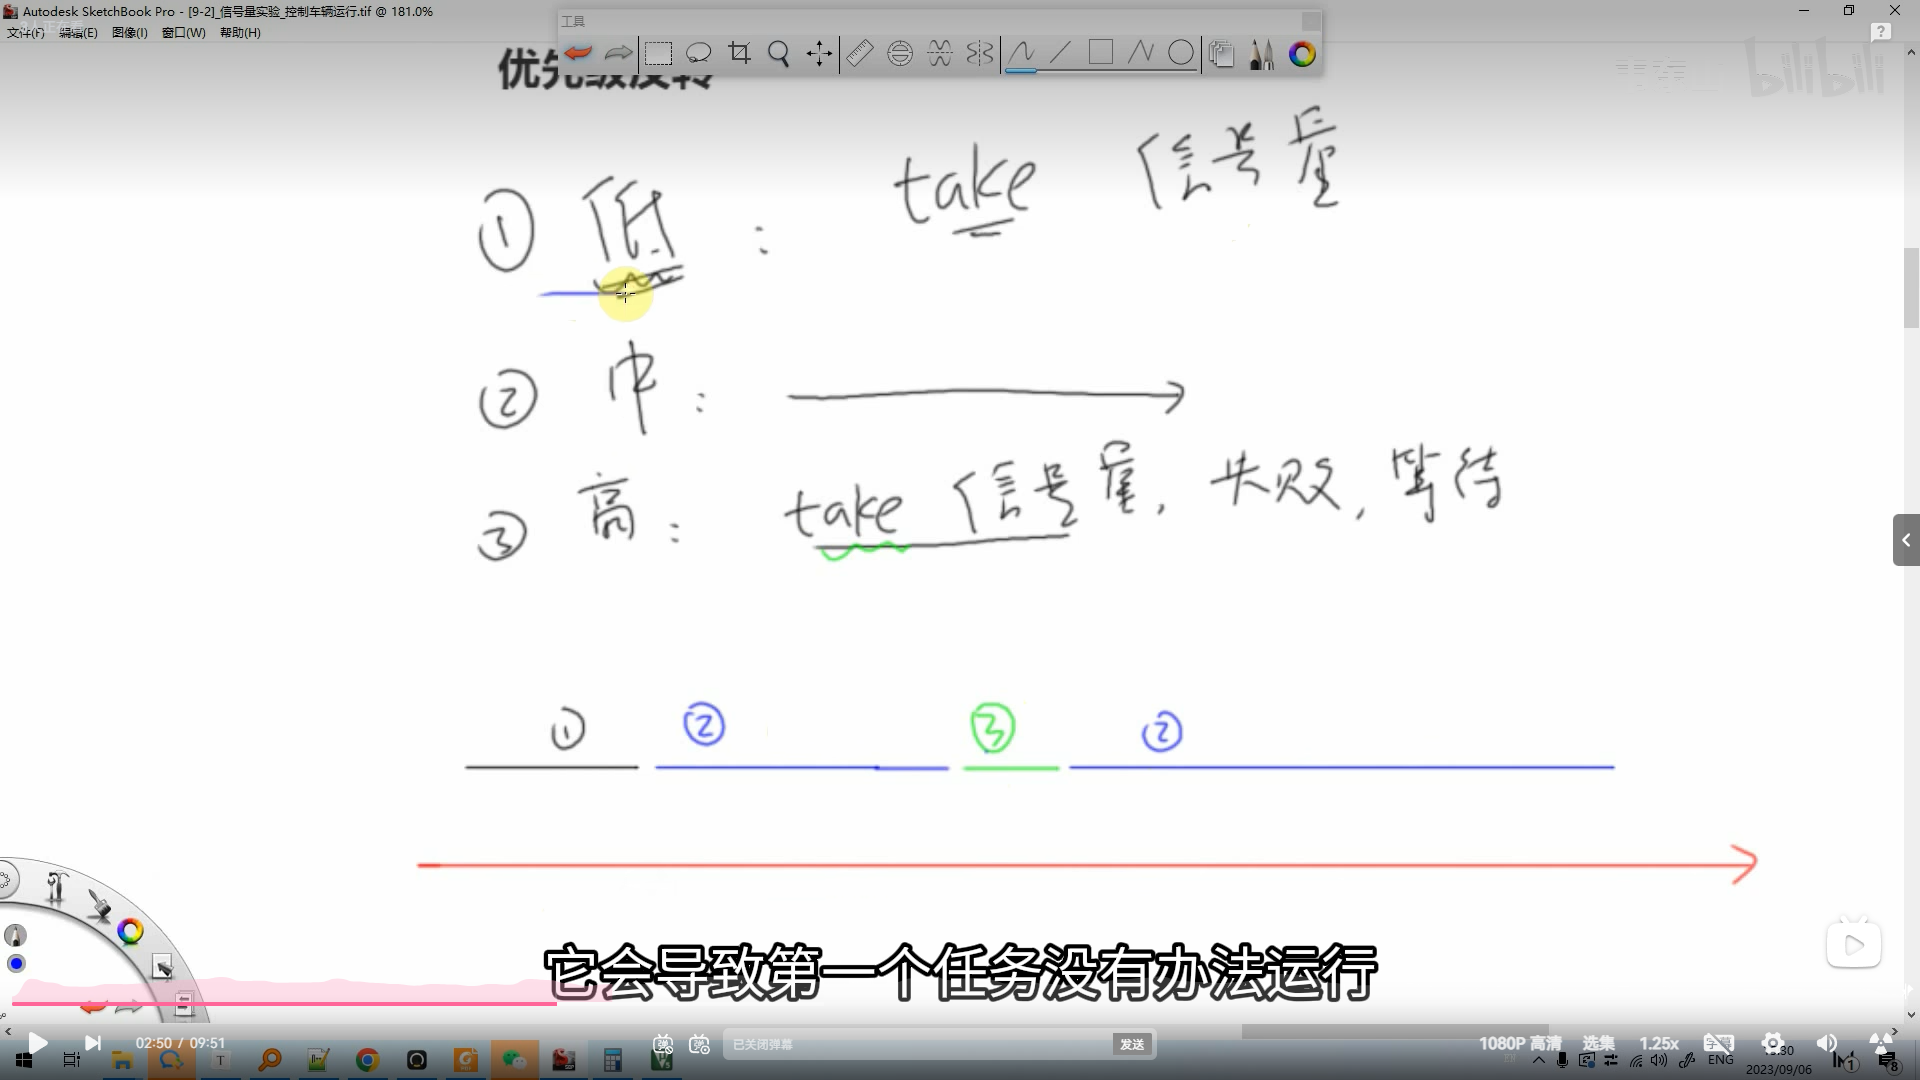 Autodesk SketchBook Pro - [9-2]_信号量实验_控制车辆运行.tif @ 181.0%
文件(F) 编辑(E) 图像(I) 窗口(W) 帮助(H)
工具
优先级反转
bilibili
① 低 : take 信号量
② 中 :
③ 高 : take 信号量, 失败, 等待
① ② ③ ②
它会导致第一个任务没有办法运行
02:50 / 09:51
已关闭弹幕
发送
1080P 高清
选集
1.25x
ENG
2023/09/06